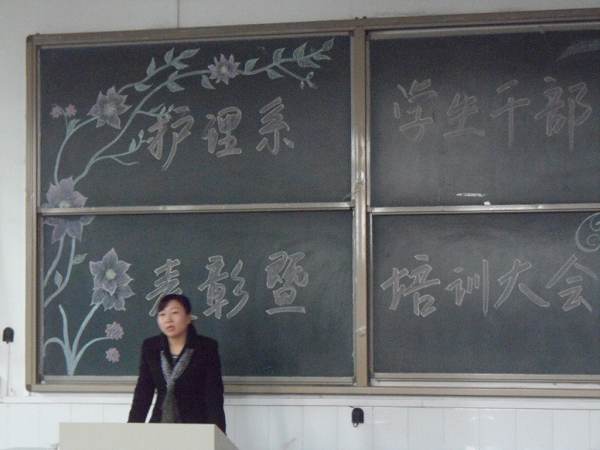 护理系 学生干部
表彰暨 培训大会